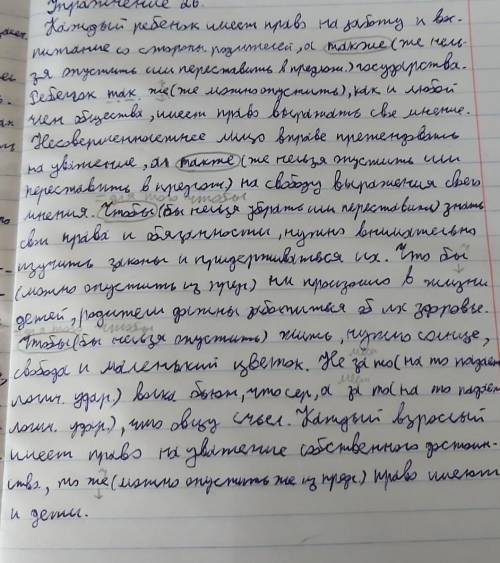 Упражнение 26.
Каждый ребенок имеет право на заботу и вос-
питание со стороны родителей, а также (же нель-
зя опустить или переставить в предлож.) государства.
Ребенок так же (же можно опустить), как и любой
член общества, имеет право выражать свое мнение.
Несовершеннолетнее лицо вправе претендовать
на уважение, а также (же нельзя опустить или
переставить в предлож) на свободу выражения своего
мнения. Чтобы (бы нельзя убрать или переставить) знать
для того чтобы
свои права и обязанности, нужно внимательно
изучить законы и придерживаться их. Что бы
(можно опустить из пред.) ни произошло в жизни
детей, родители должны заботиться об их здоровье.
Чтобы (бы нельзя опустить) жить, нужно солнце,
свобода и маленький цветок. Не за то (на то падает
логич. удар.) волка бьют, что сер, а за то (на то падает
логич. удар.), что овцу съел. Каждый взрослый
имеет право на уважение собственного достоин-
ства, то же (можно опустить же из пред.) право имеют
и дети.